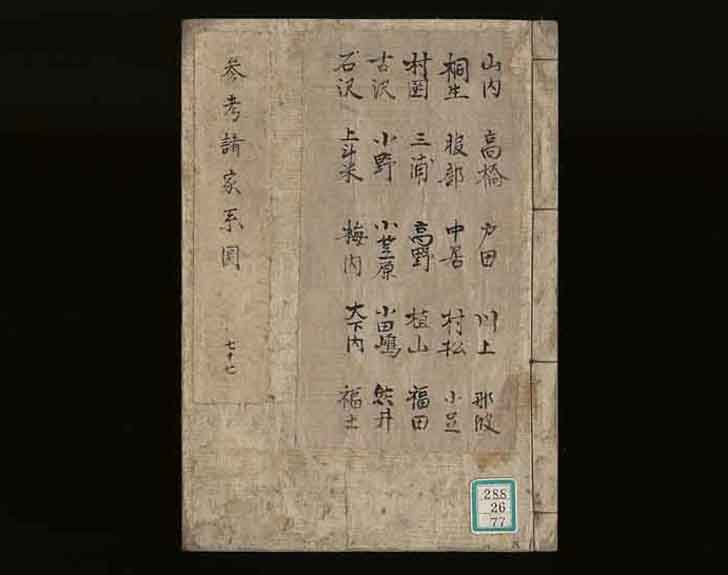 山内 高橋 戸田 川上 那波
桐生 服部 中居 村松 小足
村岡 三浦 高野 植山 福田
古沢 小野 小笠原 小田嶋 井
石沢 上斗米 梅内 大下内 福士
参考諸家系圖 七十七
288
26
77